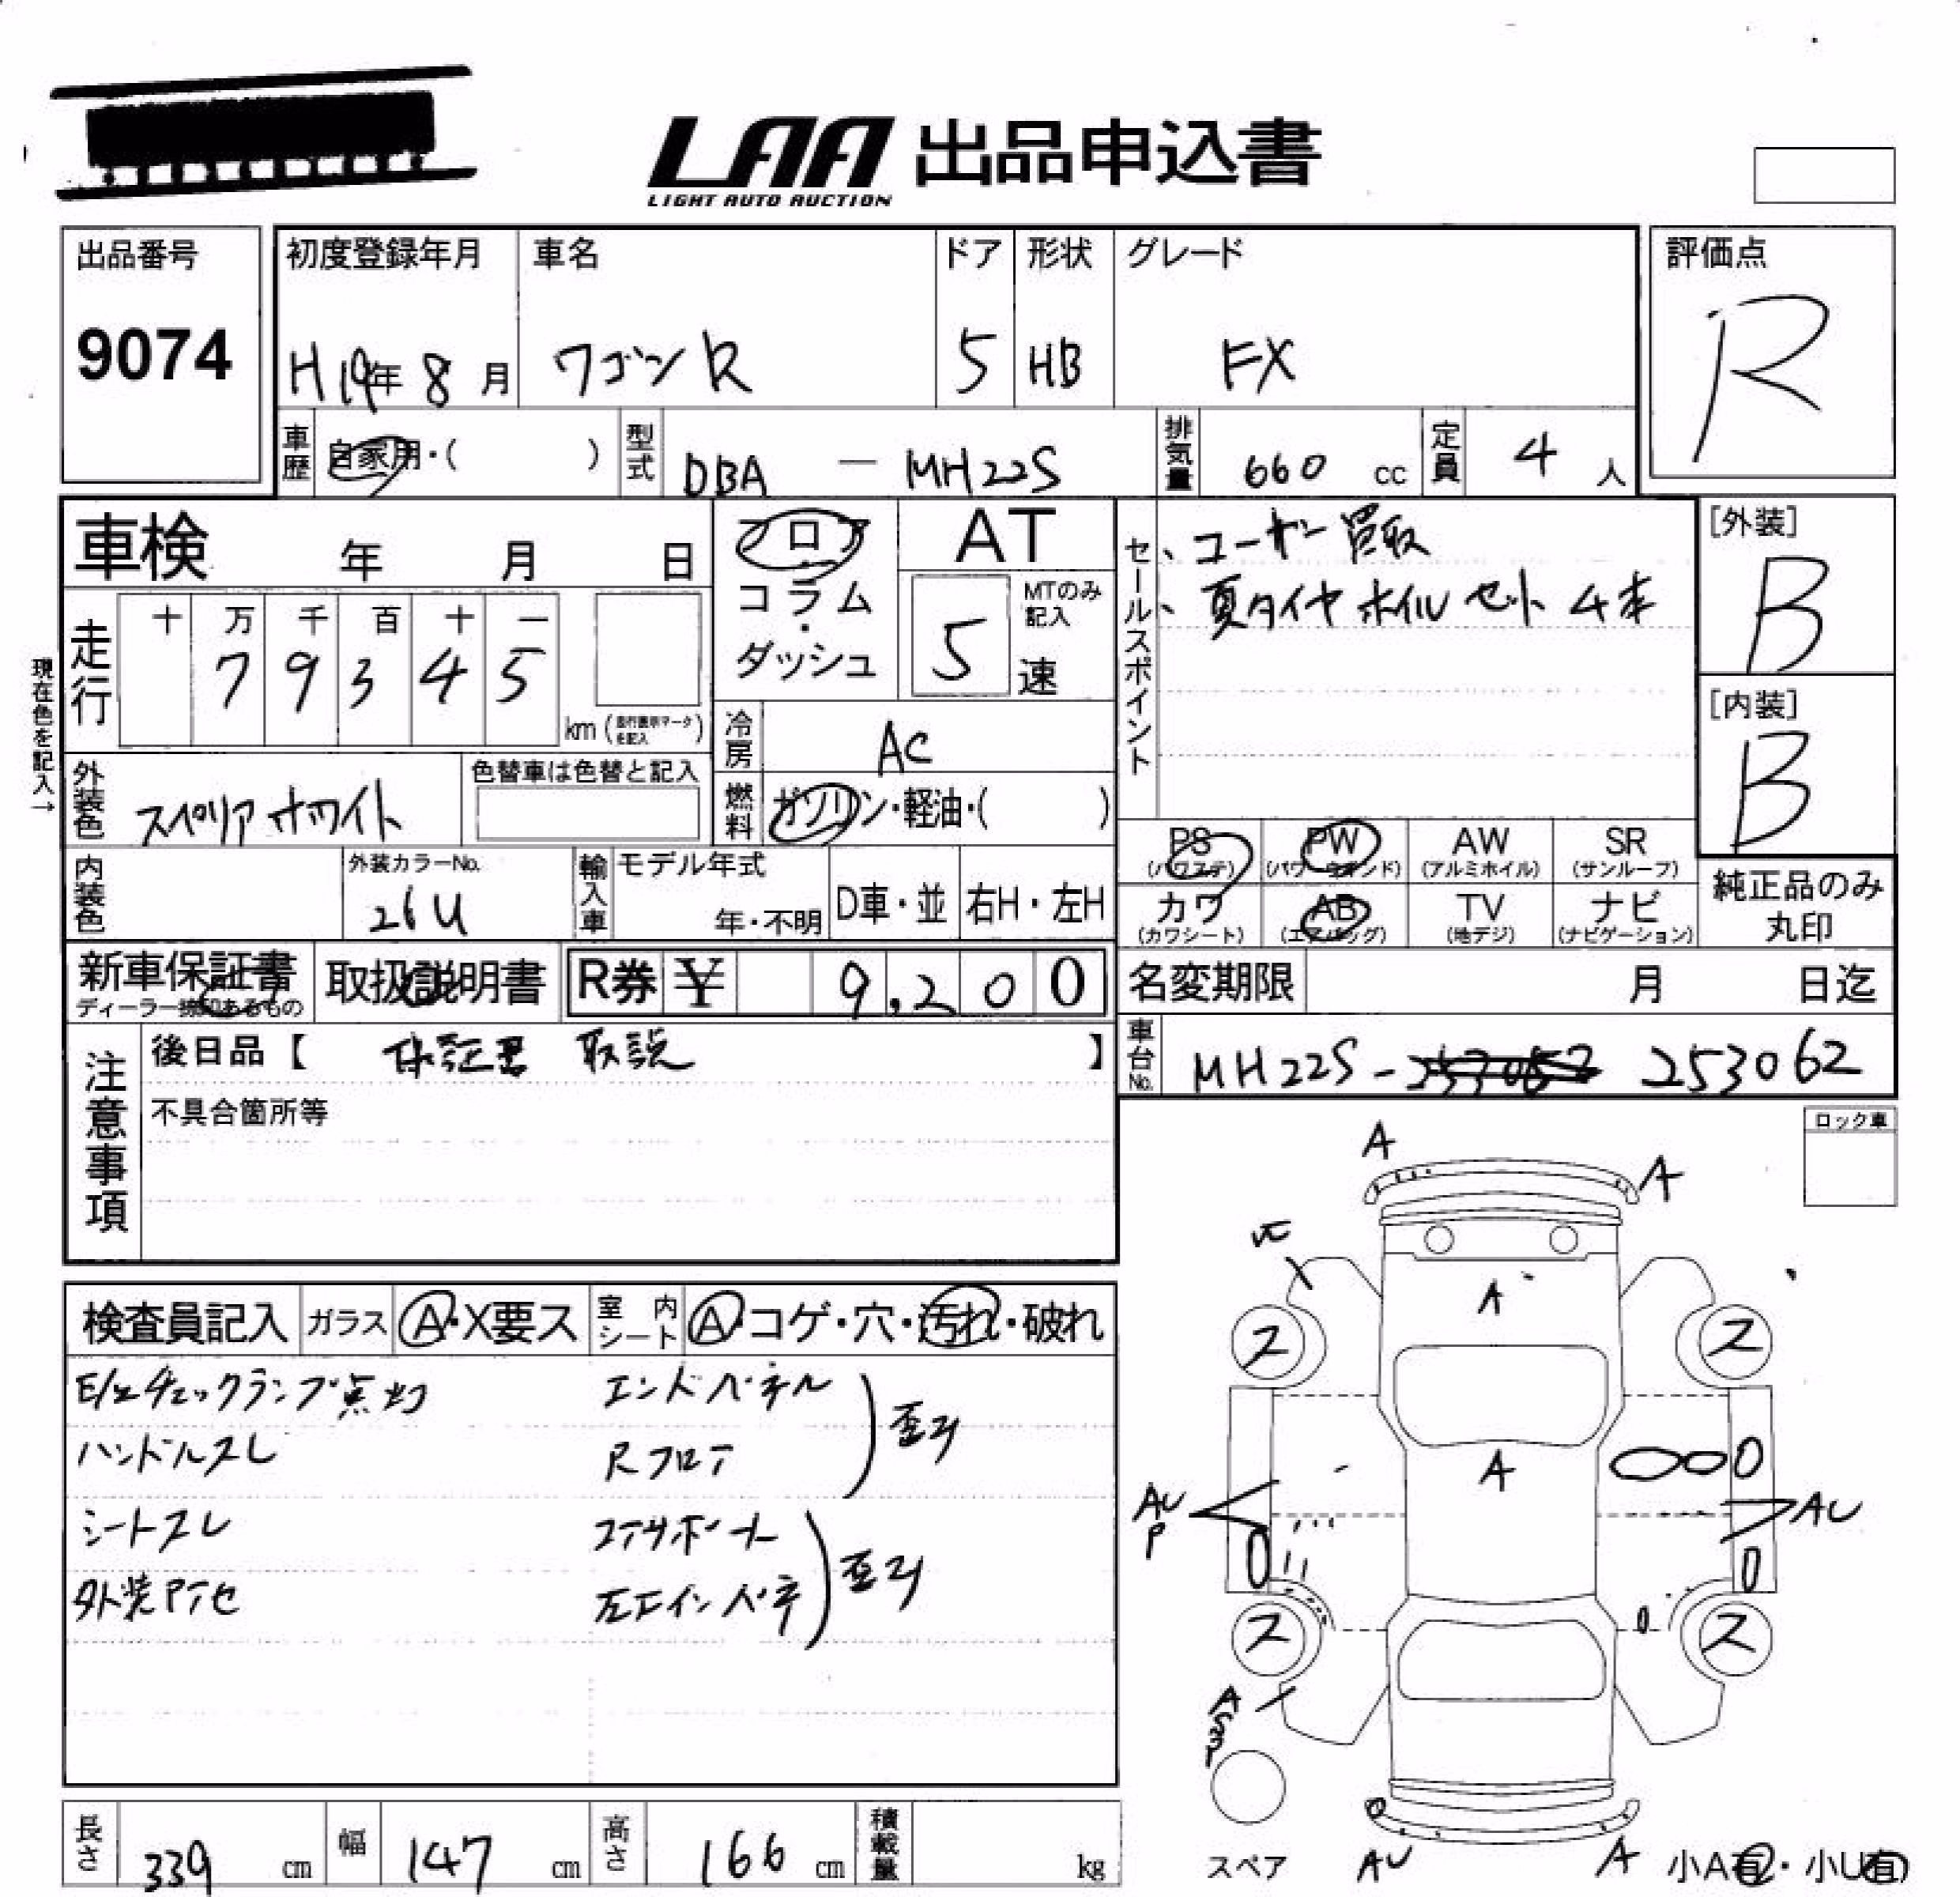 LAA 出品申込書
LIGHT AUTO AUCTION
出品番号
9074
初度登録年月
H19年8月
車名
ワゴンR
ドア
5
形状
HB
グレード
FX
評価点
R
車歴
自家用・( )
型式
DBA － MH22S
排気量
660 cc
定員
4 人
車検 年 月 日
フロア
コラム
・
ダッシュ
AT
MTのみ
記入
5 速
セールスポイント
、ユーザー買取
、夏タイヤ ホイル セット 4本
[外装]
B
[内装]
B
現在色を記入→
走行
十 万 千 百 十 一
7 9 3 4 5
km (走行表示マークを記入)
冷房
AC
燃料
ガソリン・軽油・( )
外装色
スペリアホワイト
色替車は色替と記入
内装色
外装カラーNo.
26U
輸入車
モデル年式
年・不明
D車・並
右H・左H
PS (パワステ)
PW (パワーウインド)
AW (アルミホイル)
SR (サンルーフ)
カワ (カワシート)
AB (エアバッグ)
TV (地デジ)
ナビ (ナビゲーション)
純正品のみ
丸印
新車保証書
ディーラー捺印あるもの
取扱説明書
R券 ¥ 9,200
名変期限 月 日迄
車台No.
MH22S- 253062
注意事項
後日品【 保証書 取説 】
不具合箇所等
ロック車
検査員記入
ガラス
A・X要ス
室内シート
A・コゲ・穴・汚れ・破れ
E/Gチェックランプ点灯
エンドパネル
ハンドルスレ
Rフロア
歪み
シートスレ
コアサポート
外装Pアセ
左Fインパネ
歪み
A
A
A
A
ス
ス
AU
P
AU
ス
ス
スペア
AU
A
小A有・小U有
長さ
339 cm
幅
147 cm
高さ
166 cm
積載量
kg